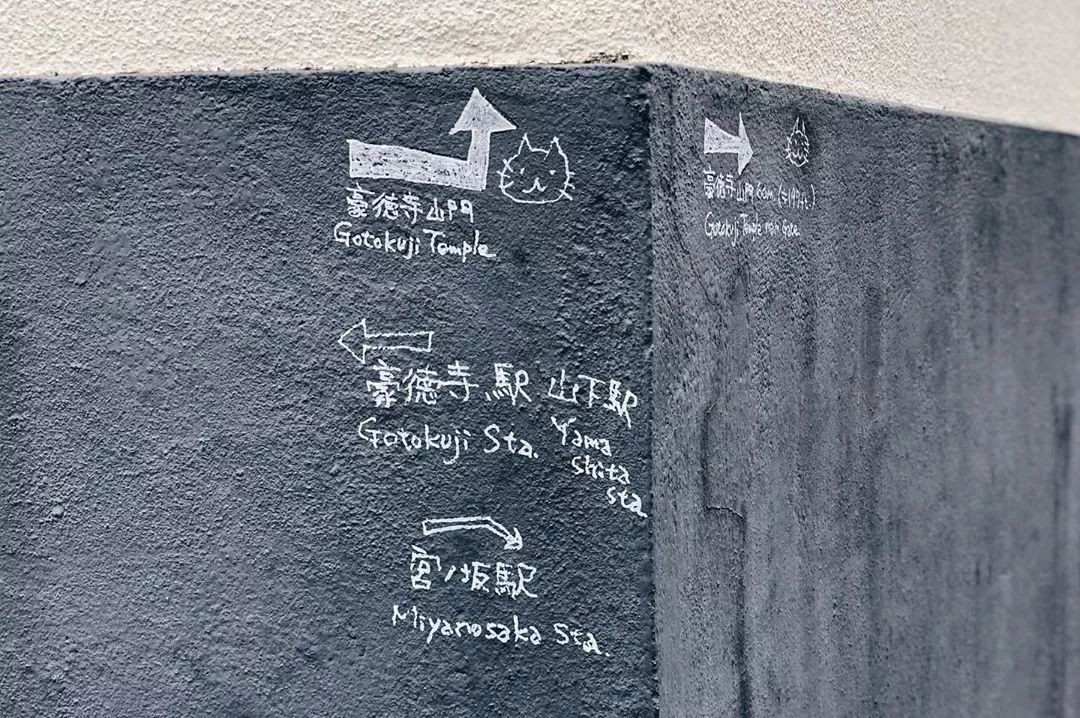 豪徳寺山門
Gotokuji Temple
豪徳寺駅 山下駅
Gotokuji Sta. Yama
shita
sta
宮ノ坂駅
Miyanosaka Sta.
豪徳寺山門
Gotokuji Temple main Gate